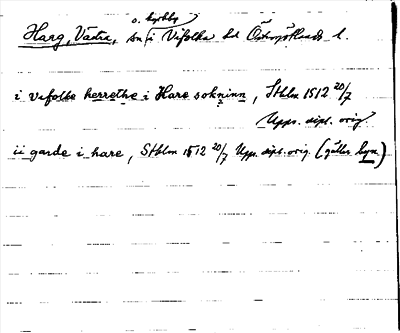 o. kyrkby
Harg, Västra, sn i Vifolka hd Östergötlands l.
i vifolke herrethe i Hare sokninn, Sthlm 1512 20/7
Upps. dipl. orig.
ii garde i hare, Sthlm 1512 20/7 Upps. dipl. orig. (gäller byn)